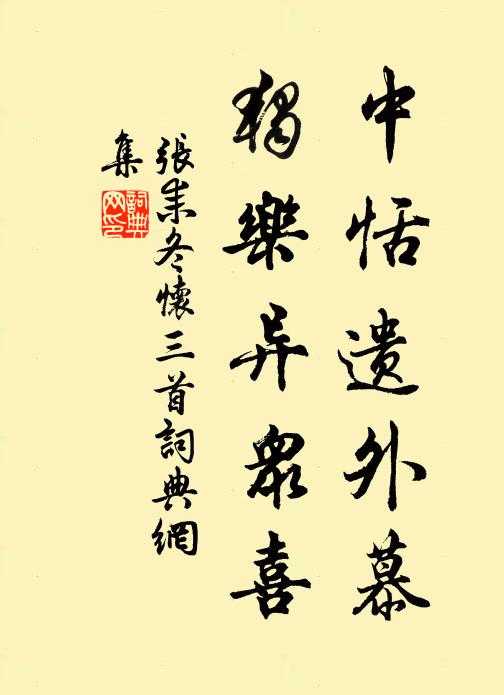 中恬遗外慕
獨樂异衆喜
張耒冬懷三首詞典網
集
詞典网印